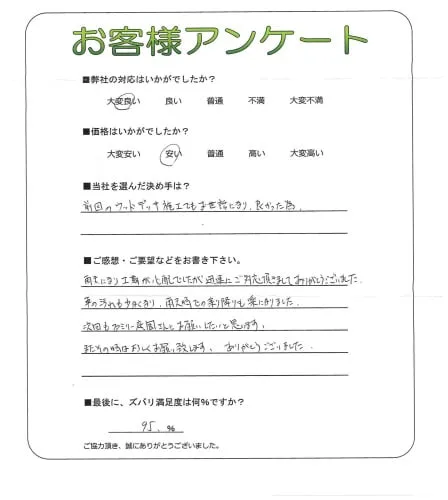 お客様アンケート
■弊社の対応はいかがでしたか？
大変良い 良い 普通 不満 大変不満
■価格はいかがでしたか？
大変安い 安い 普通 高い 大変高い
■当社を選んだ決め手は？
前回のウッドデッキ施工でもお世話になり、良かった為。
■ご感想・ご要望などをお書き下さい。
雨天になり工事が心配でしたが迅速にご対応頂きましてありがとうございました。
車の汚れも少なくなり、雨天時での乗り降りも楽になりました。
次回もファミリー庭園さんにお願いしたいと思います。
またその時はよろしくお願い致します。ありがとうございました。
■最後に、ズバリ満足度は何％ですか？
95.％
ご協力頂き、誠にありがとうございました。